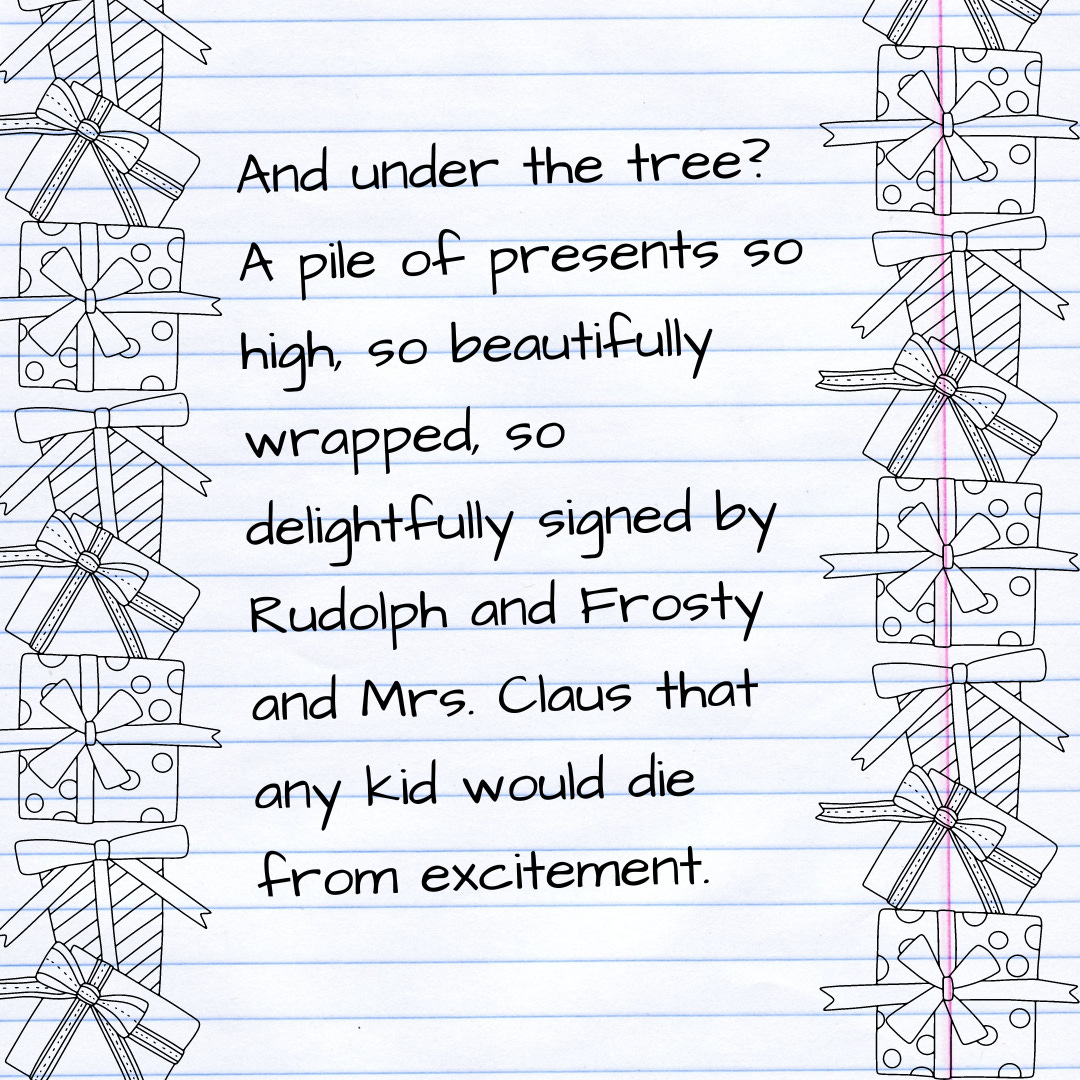 And under the tree?
A pile of presents so
high, so beautifully
wrapped, so
delightfully signed by
Rudolph and Frosty
and Mrs. Claus that
any kid would die
from excitement.